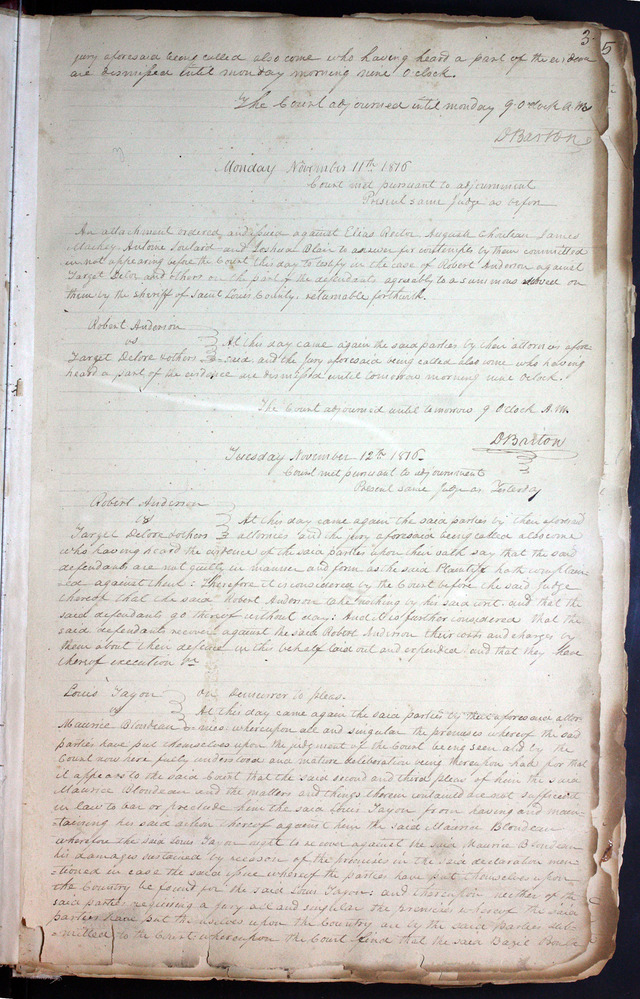 3 5
jury aforesaid being called also come who having heard a part of the evidence
are dismissed until monday morning nine Oclock.
The Court adjourned until monday 9. Oclock A.M
DBarton
Monday November 11th 1816
Court met pursuant to adjournment
Present same Judge as before
An attachment ordered and issued against Elias Rector August Chouteau James
Mackey, Antoine Soulard and Joshua Blair to answer for contempts by them committed
in not appearing before the Court this day to testify in the case of Robert Anderson against
Target Delor and others on the part of the defendants agreeably to a summons served on
them by the Sheriff of Saint Louis County. returnable forthwith.
Robert Anderson
vs At this day came again the said parties by their attornies afore
Target Delore & others said and the Jury aforesaid being called also come who having
heard a part of the evidence are dismissed until tomorrow morning nine Oclock.
The Court adjourned until tomorrow 9 Oclock A.M.
DBarton
Tuesday November 12th 1816
Court met pursuant to adjournment
Present same Judge as Yesterday
Robert Anderson
vs At this day came again the said parties by their aforesaid
Target Delore & others attornies and the jury aforesaid being called also come
who having heard the evidence of the said parties upon their oath say that the said
defendants are not guilty in manner and form as the said Plaintiff hath complain-
ed against them: Therefore it is considered by the Court before the said Judge
thereof that the said Robert Anderson take nothing by his said writ. and that the
said defendants go thereof without day: And it is further considered that the
said defendants recover against the said Robert Anderson their costs and charges by
them about their defence in this behalf laid out and expended and that they have
thereof execution &c
Louis Tayon on Demurrer to pleas.
vs At this day came again the said parties by their aforesaid attor
Maurice Blondeau nies, whereupon all and singular the premises whereof the said
parties have put themselves upon the judgment of the Court being seen and by the
Court now here fully understood and mature deliberation being thereupon had, for that
it appears to the said Court that the said second and third pleas of him the said
Maurice Blondeau and the matters and things therein contained are not sufficient
in law to bar or preclude him the said Louis Tayon from having and main-
taining his said action thereof against him the said Maurice Blondeau
wherefore the said Louis Tayon ought to recover against the said Maurice Blondeau
his damages sustained by reason of the premises in the said declaration men
tioned in case the said issue whereof the parties have put themselves upon
the Country be found for the said Louis Tayon: and thereupon neither of the
said parties requiring a jury all and singular the premises whereof the said
parties have put themselves upon the Country are by the said Parties sub-
mitted to the Court whereupon the Court find that the said Bazil